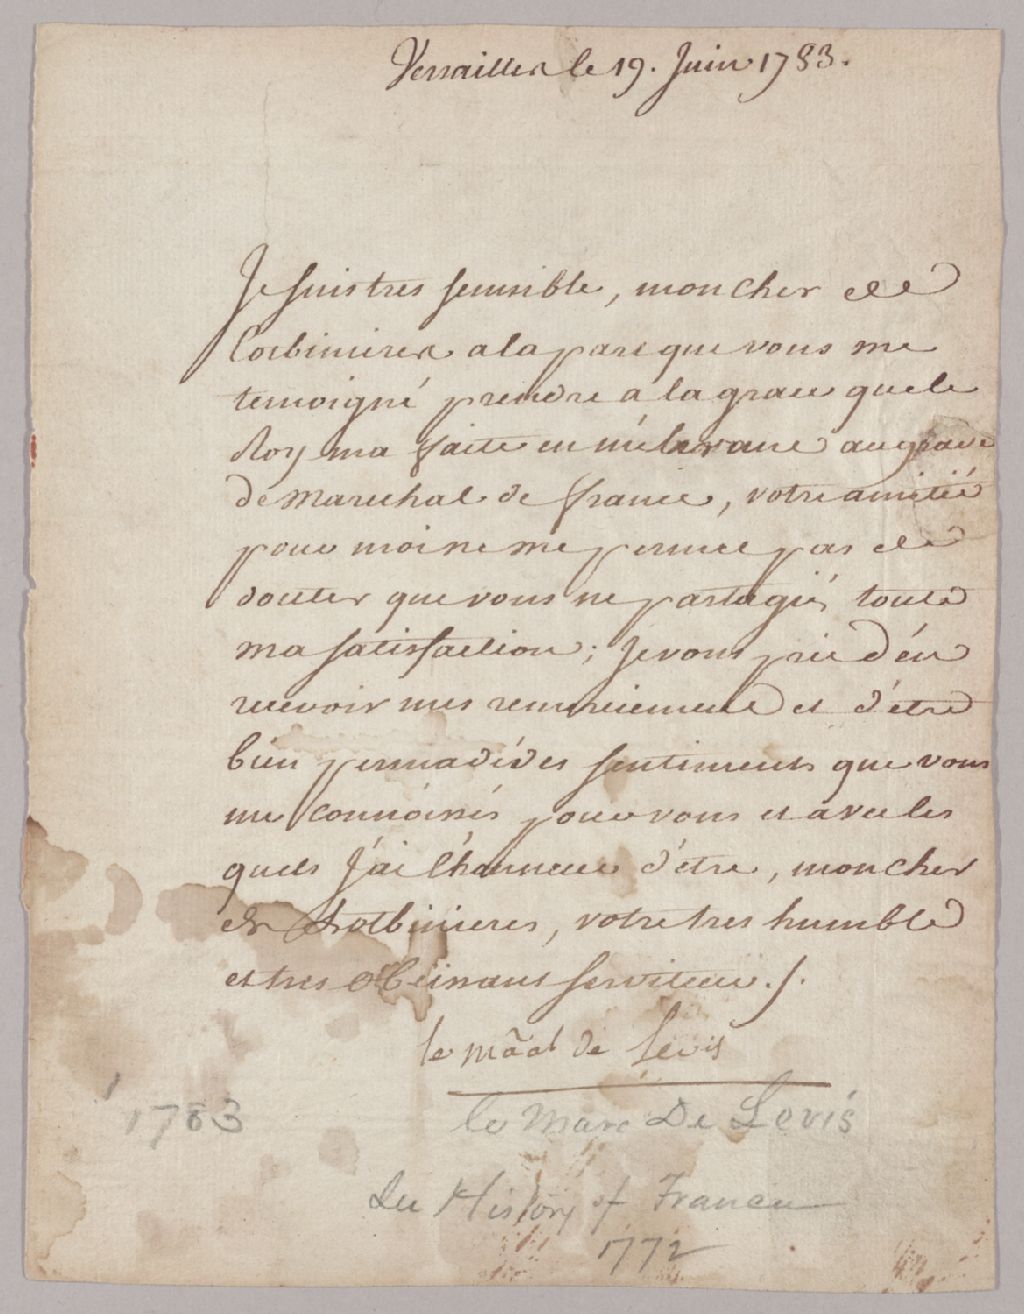 Versailles le 19. Juin 1783.
Je suis tres sensible, mon cher de
Lotbinieres a la part que vous me
temoigné prendre a la grace que le
Roy ma faite en m'elevant au grade
de Marechal de france, votre amitié
pour moi ne me permet pas de
douter que vous ne partagiés toute
ma satisfaction; Je vous prie d'en
recevoir mes remerciements et d'etre
bien persuadé des sentiments que vous
me connoissés pour vous et avec les
quels J'ai l'honneur d'etre, mon cher
de Lotbinieres, votre tres humble
et tres obeissant serviteur ./.
le mãal de Levis
1783
le Mare De Levis
See History of France
1772